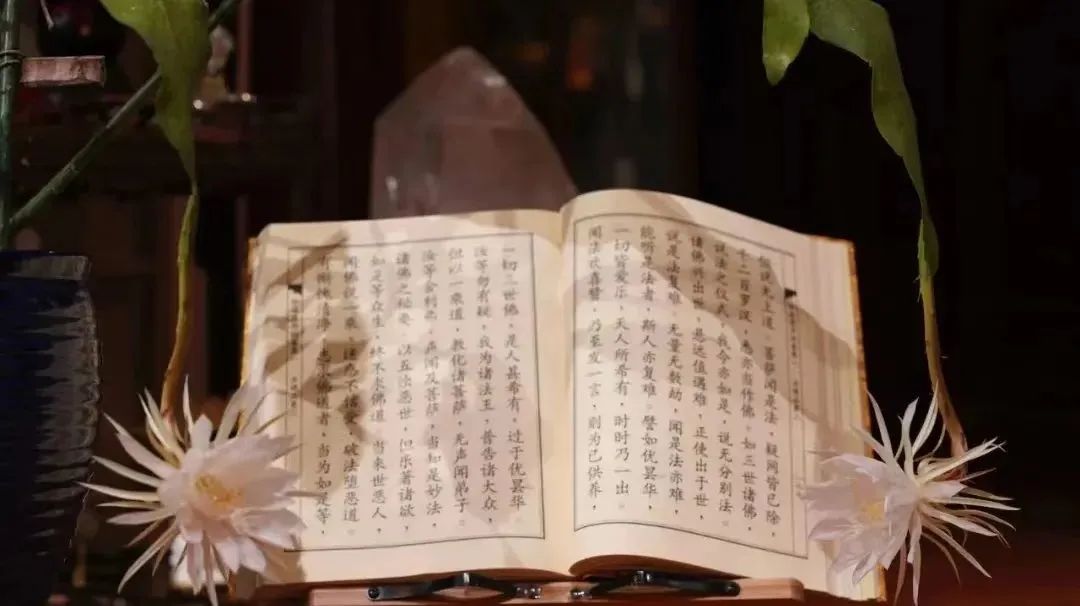 但说无上道。菩萨闻是法，疑网皆已除，
千二百罗汉，悉亦当作佛。如三世诸佛，
说法之仪式，我今亦如是，说无分别法。
诸佛兴出世，悬远值遇难，正使出于世，
说是法复难。无量无数劫，闻是法亦难，
能听是法者，斯人亦复难。譬如优昙华，
一切皆爱乐，天人所希有，时时乃一出，
闻法欢喜赞，乃至发一言，则为已供养，
一切三世佛，是人甚希有，过于优昙华
汝等勿有疑，我为诸法王，普告诸大众，
但以一乘道，教化诸菩萨，无声闻弟子。
汝等舍利弗，声闻及菩萨，当知是妙法，
诸佛之秘要。以五浊恶世，但乐著诸欲，
如是等众生，终不求佛道。当来世恶人，
闻佛说一乘，迷惑不信受，破法堕恶道。
有惭愧清净，志求佛道者，当为如是等，